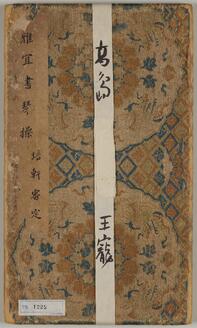 雅宜書琴操
培軒審定
王寵
1225